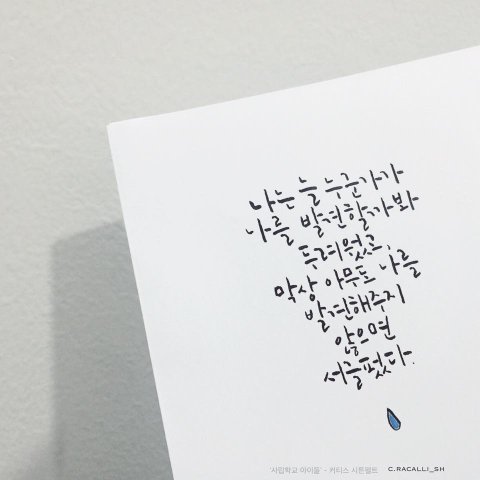 나는 늘 누군가가
나를 발견할까봐
두려웠고,
막상 아무도 나를
발견해주지
않으면
서글펐다.
'사립학교 아이들' - 커티스 시튼펠트 C.RACALLI_SH